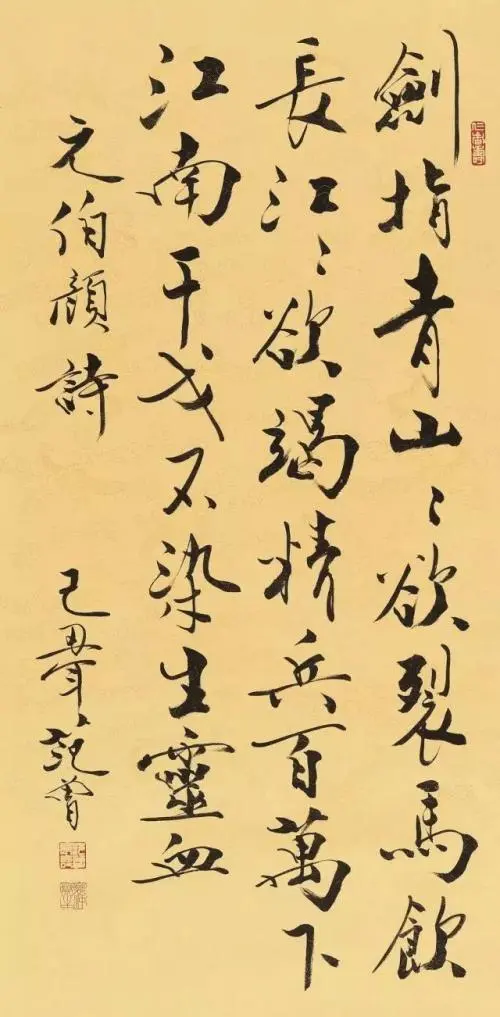 劍指青山〻欲裂馬飲
長江〻欲竭精兵百萬下
江南干戈不染生靈血
元伯顏詩
己丑年范曾